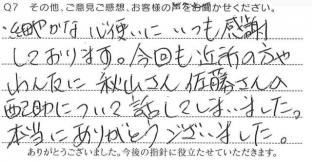 Q7 その他、ご意見ご感想、お客様の声をお聞かせください。
細やかな心使いにいつも感謝
しております。今回も近所の方や
友に秋山さん佐藤さんの
配助について話してしまいました。
本当にありがとうございました。
ありがとうございました。今後の指針に役立たせていただきます。